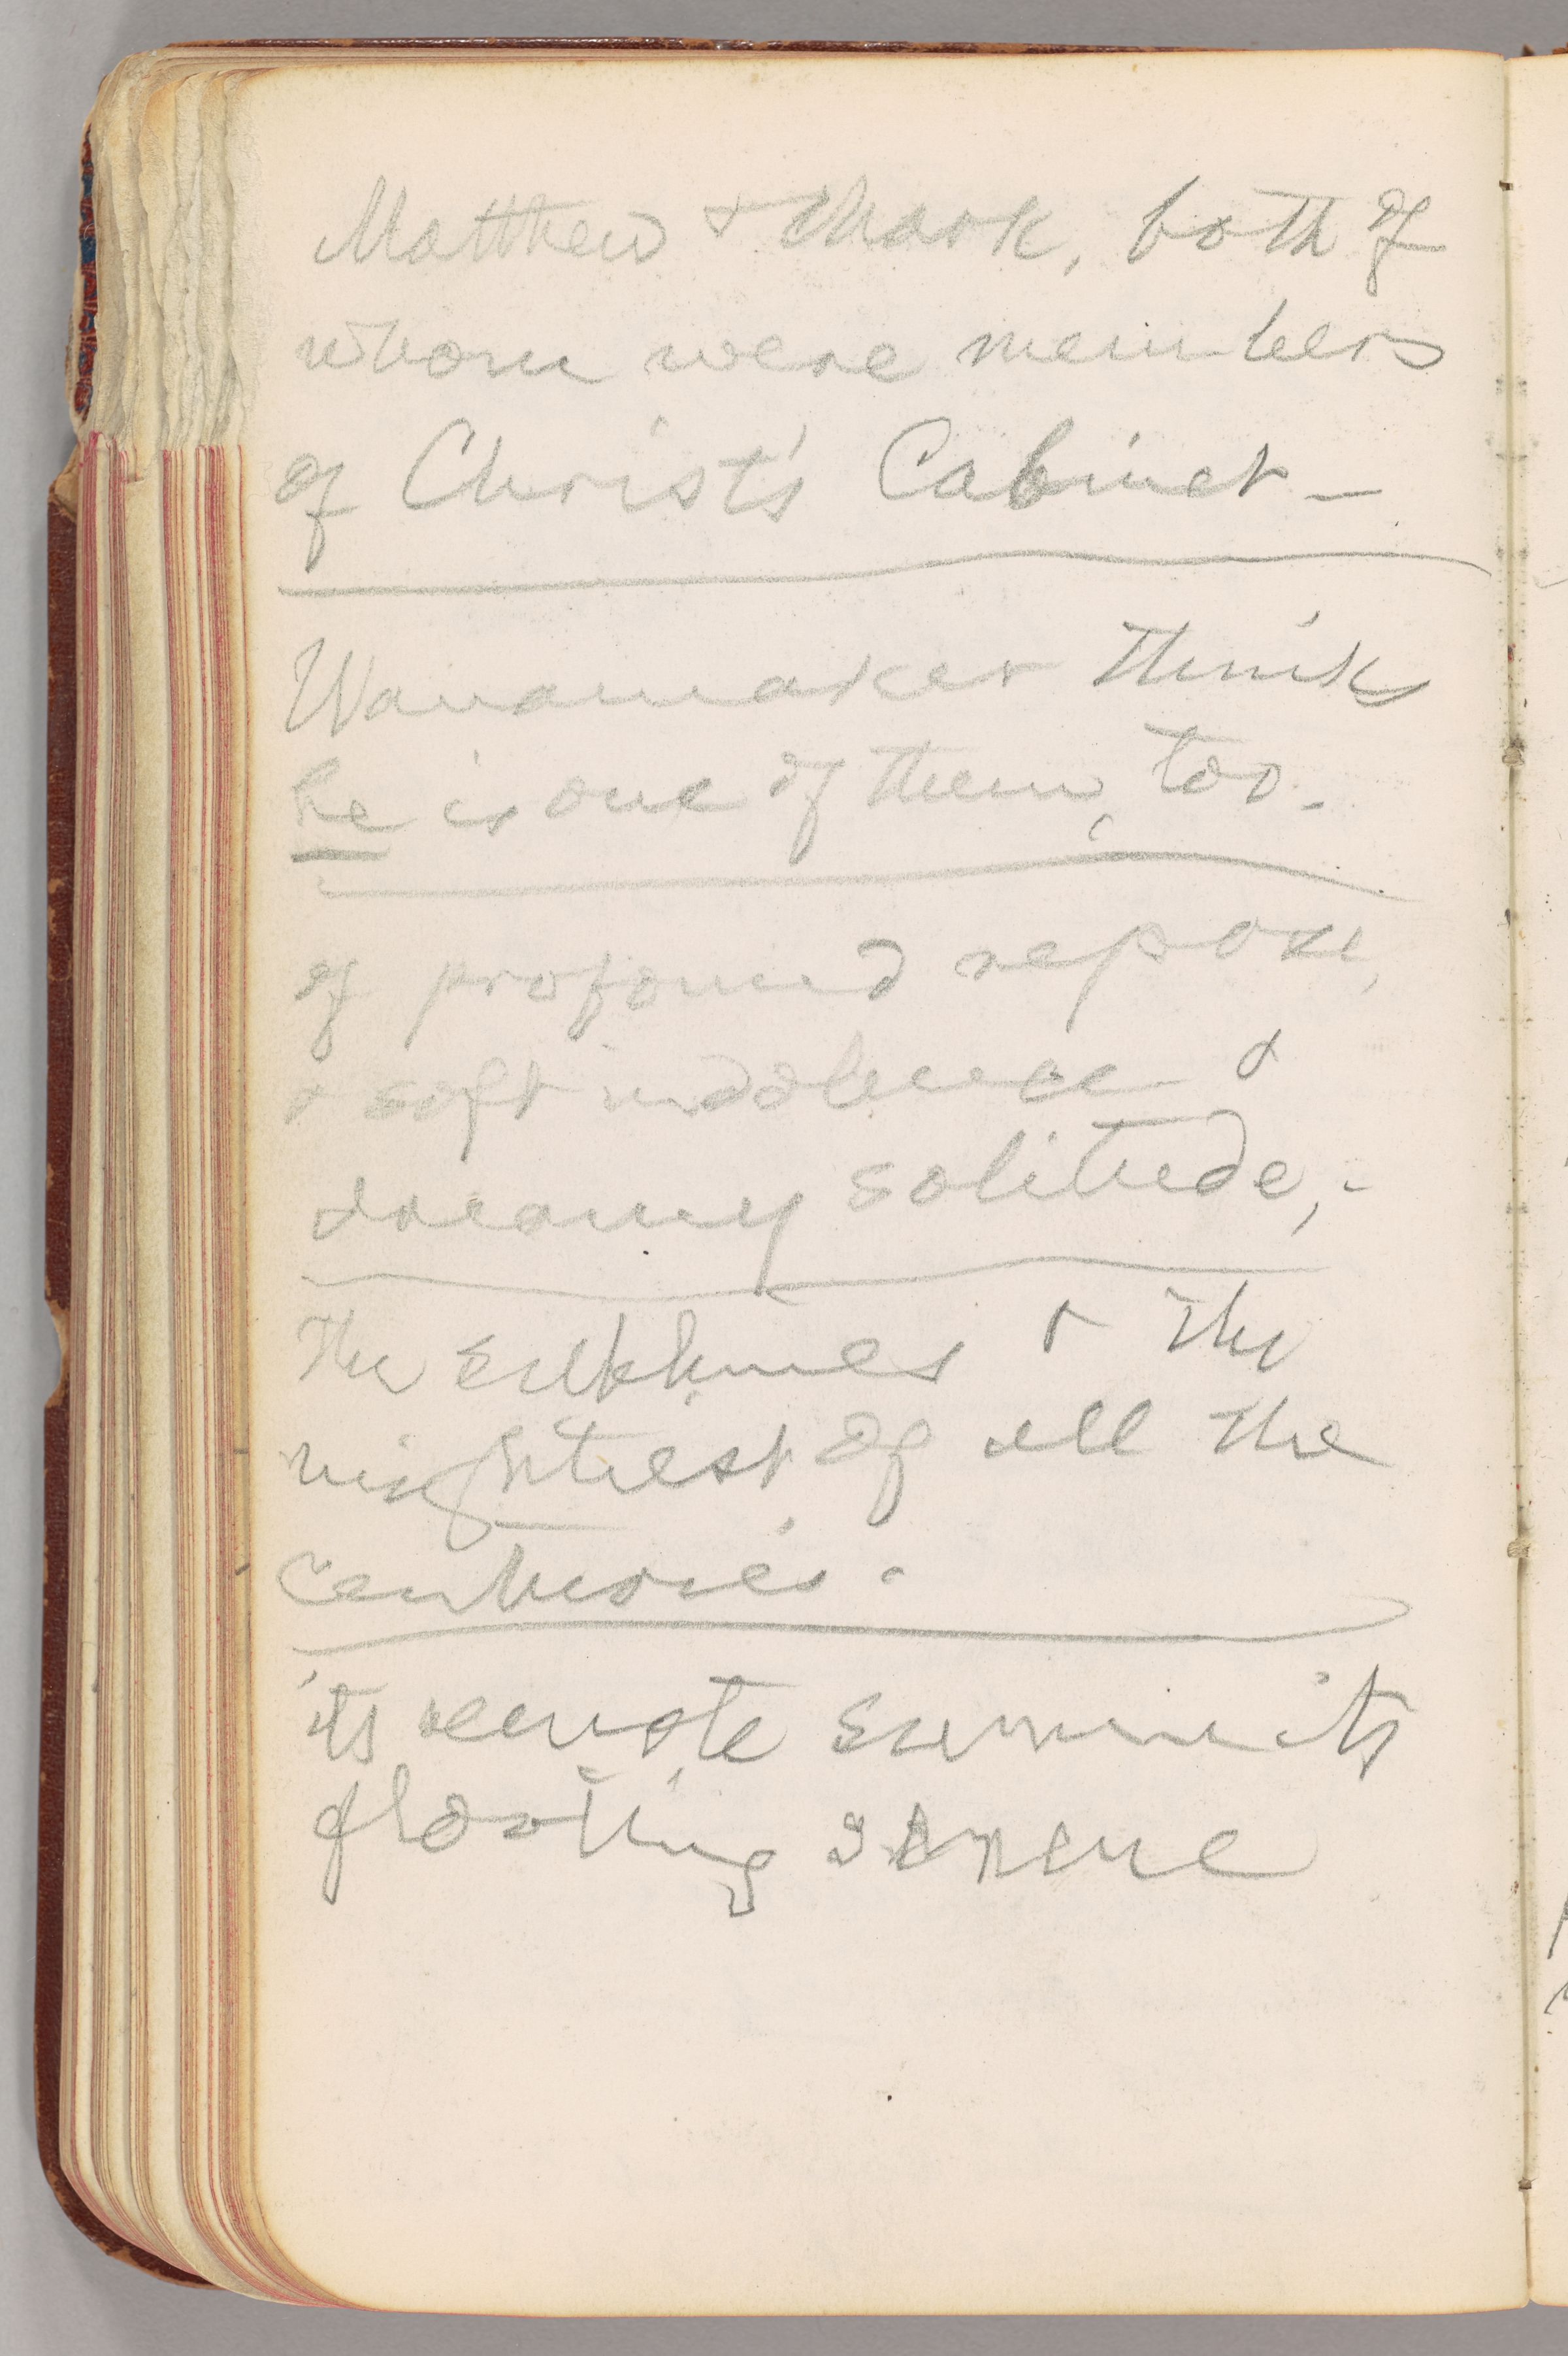 Matthew & Mark, both of
whom were members
of Christ's Cabinet —
Wanamaker thinks
he is one of them, too.
of profound repose,
& soft indolence &
dreamy solitude,-
The sublimest & the
mightiest of all the
centuries.
its remote summits
floating serene